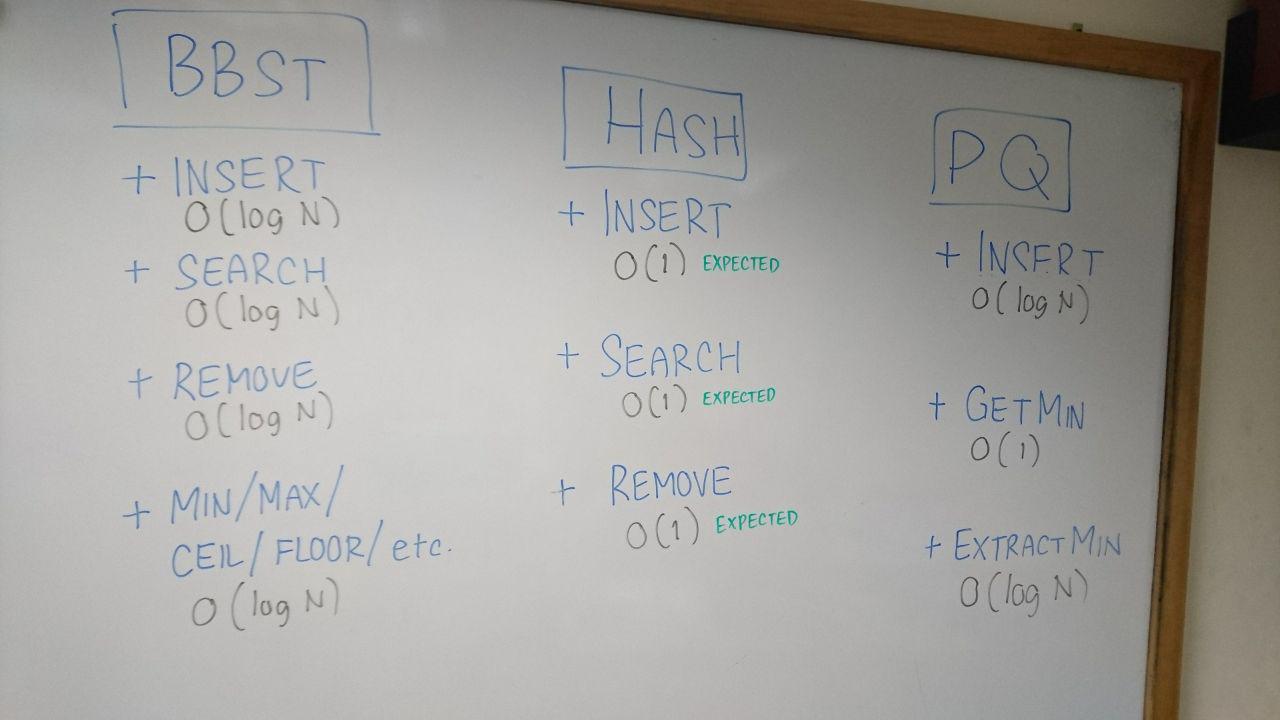 BBST
+ INSERT
O(log N)
+ SEARCH
O(log N)
+ REMOVE
O(log N)
+ MIN/MAX/
CEIL/FLOOR/etc.
O(log N)
HASH
+ INSERT
O(1) EXPECTED
+ SEARCH
O(1) EXPECTED
+ REMOVE
O(1) EXPECTED
PQ
+ INSERT
O(log N)
+ GETMIN
O(1)
+ EXTRACTMIN
O(log N)